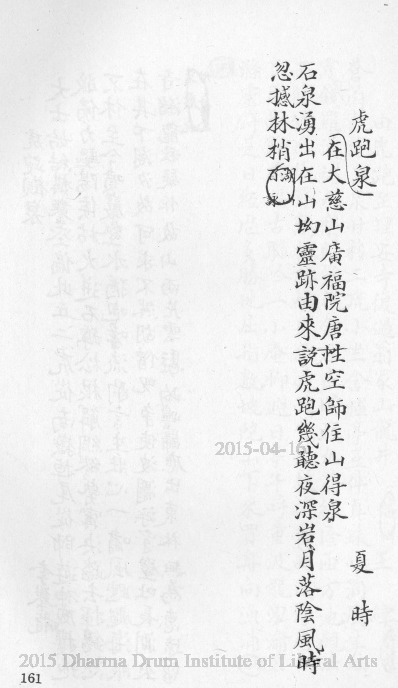 虎跑泉 夏時
在大慈山廣福院唐性空師住山得泉
石泉湧出在山坳靈跡由來說虎跑幾聽夜深岩月落陰風時
忽撼林梢
湖山
百詠
2015-04-16
2015 Dharma Drum Institute of Liberal Arts
161